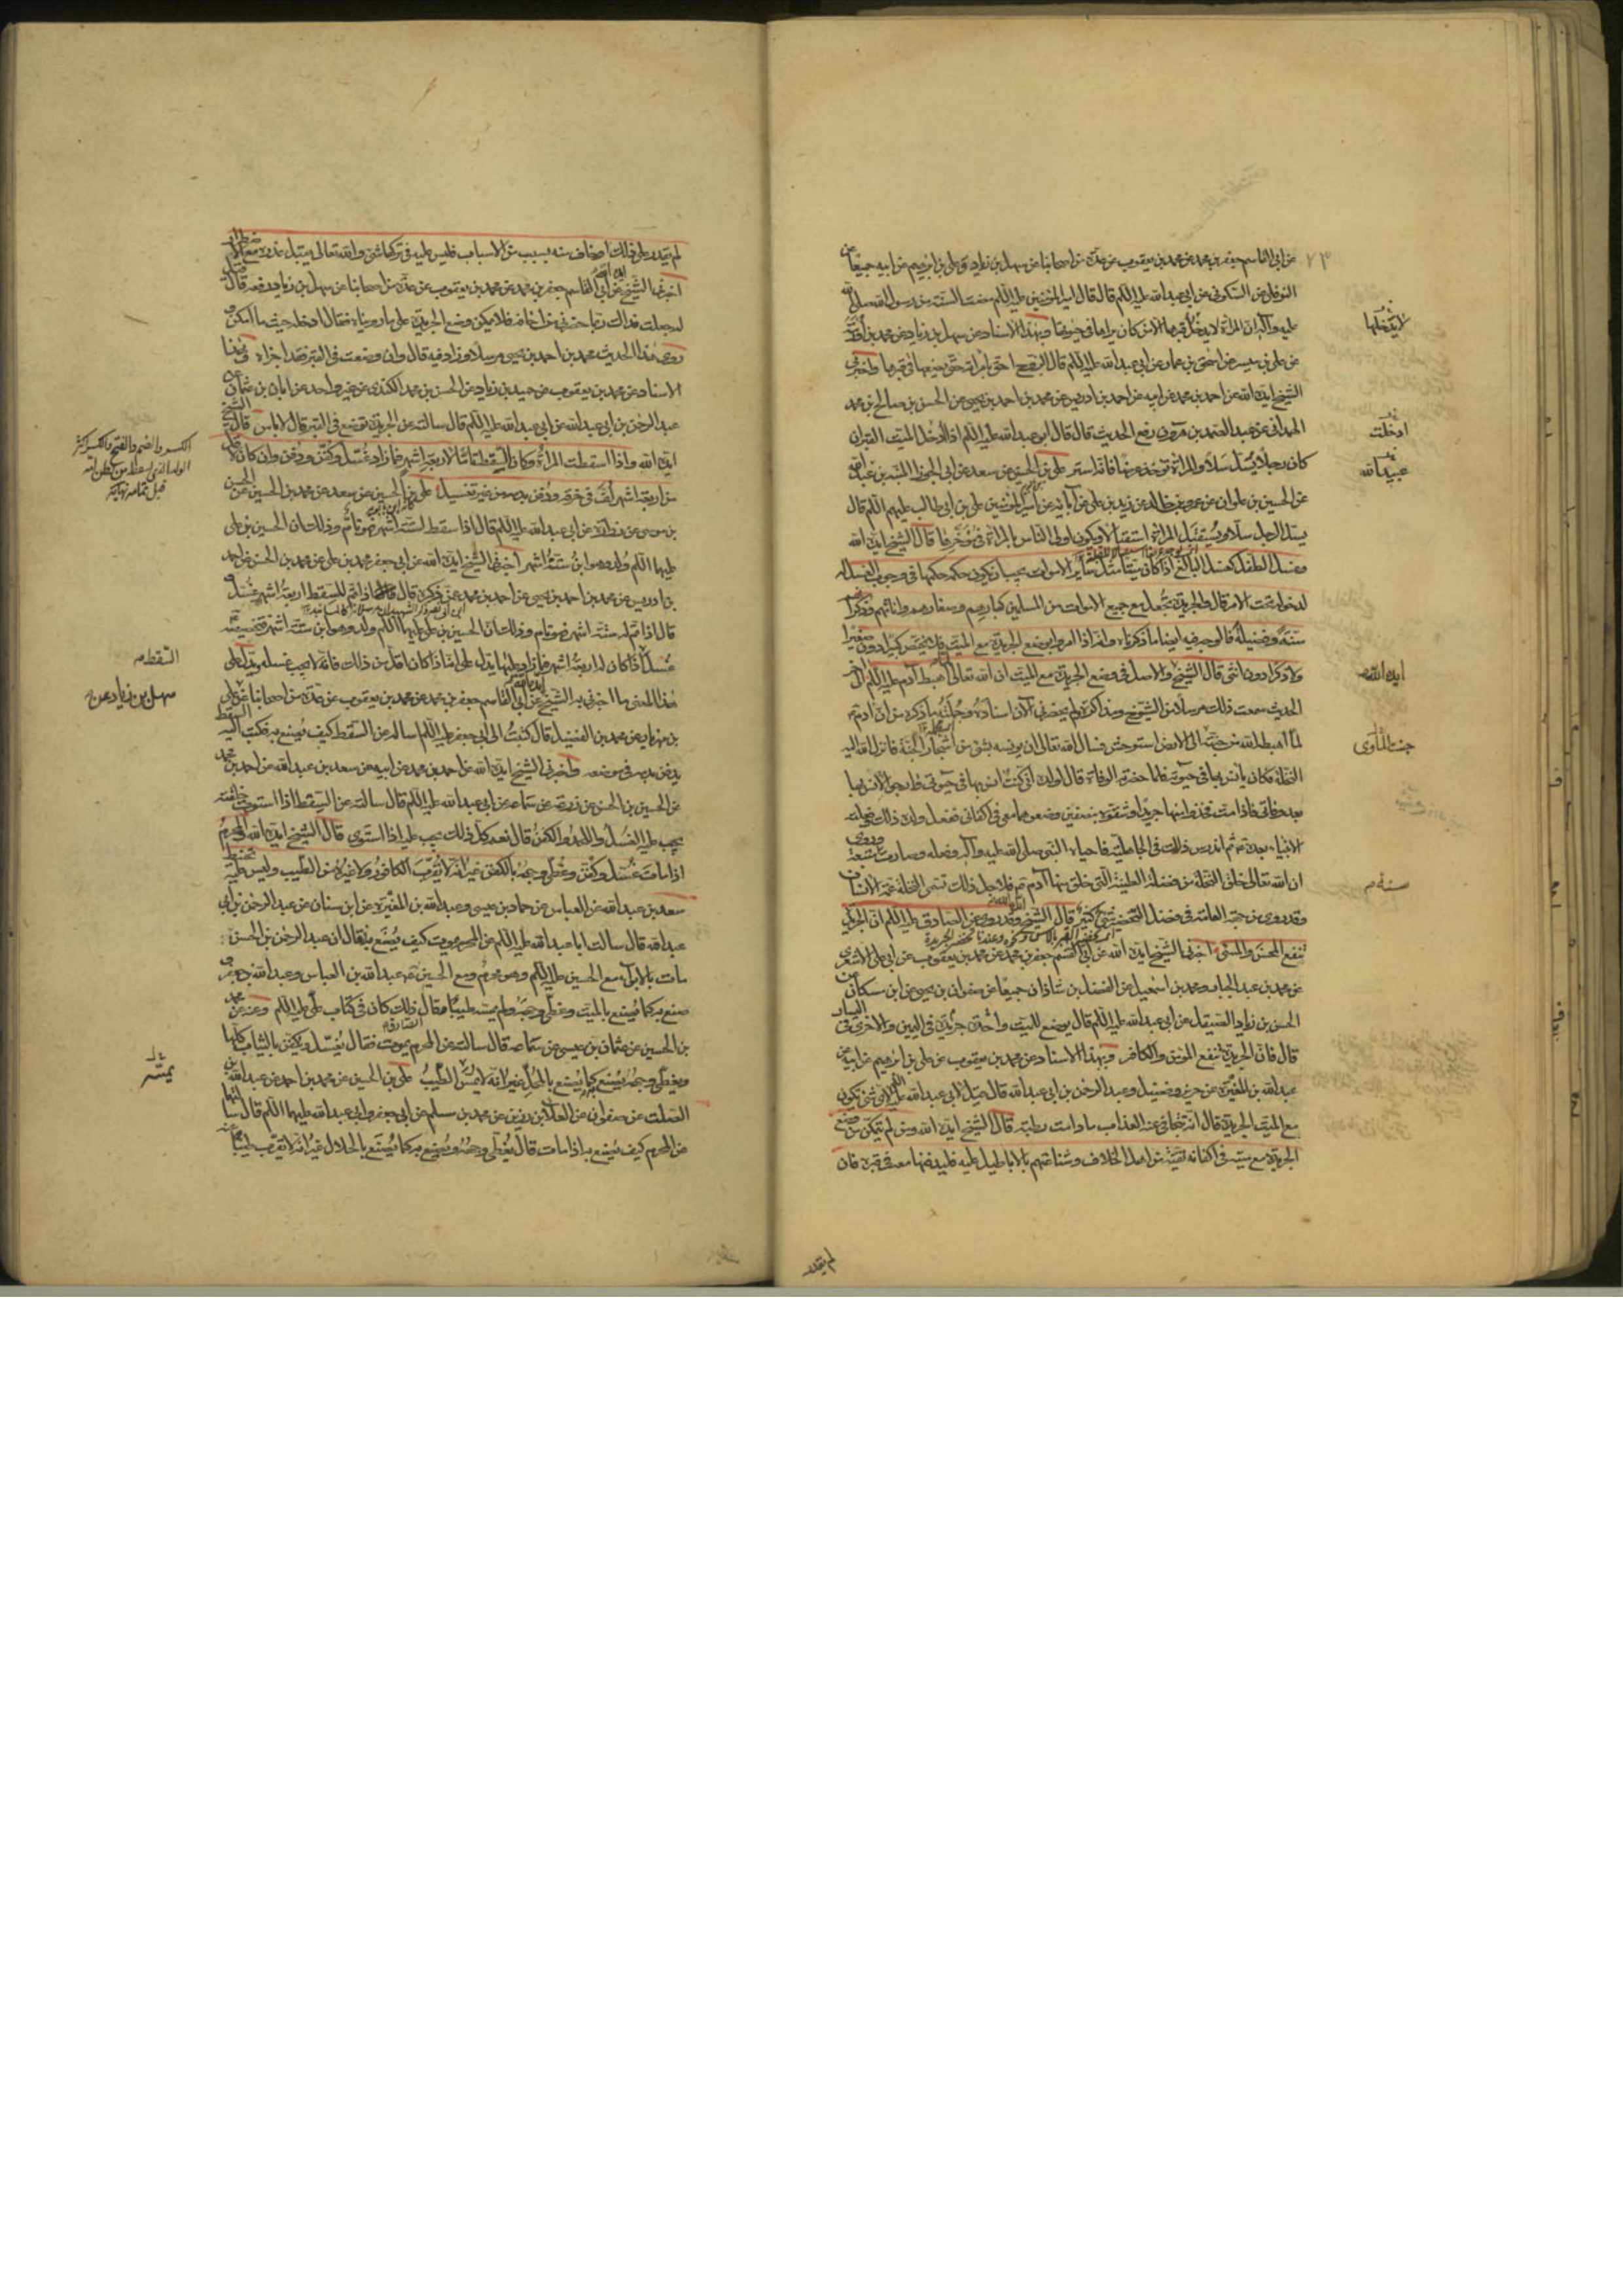 عن ابي القاسم جعفر بن محمد عن محمد بن يعقوب عن عدة من اصحابنا عن سهل بن زياد وعلي بن ابرهيم عن ابيه جميعا عن
النوفلي عن السكوني عن ابي عبد الله عليه السلم قال قال امير المؤمنين عليه السلم مضت السنة من رسول الله صلى الله
عليه وآله ان المرأة لا يدخل قبرها الا من كان يراها في حيوتها وبهذا الاسناد عن سهل بن زياد عن محمد بن اورمة
عن علي بن ميسر عن اسحق بن عمار عن ابي عبد الله عليه السلم قال الزوج احق بامرأته حتى يضعها في قبرها واخبرني
الشيخ ايده الله عن احمد بن محمد عن ابيه عن احمد بن ادريس عن محمد بن احمد بن يحيى عن الحسن بن صالح بن محمد
الهمداني عن عبد الصمد بن هرون رفع الحديث قال قال ابو عبد الله عليه السلم اذا ادخل الميت القبر ان
كان رجلا يسل سلا والمرأة تؤخذ عرضا فانه استر علي بن الحسين عن سعد عن ابي الجوزا المنبه بن عبد الله
عن الحسين بن علوان عن عمرو بن خالد عن زيد بن علي عن آبائه عن امير المؤمنين علي بن ابي طالب عليهم السلم قال
يسل الرجل سلا ويستقبل المرأة استقبالا ويكون اولى الناس بالمرأة في مؤخرها قال الشيخ ايده الله
وغسل الطفل كغسل البالغ اذا كان ميتا مثل سائر الاموات يجب ان يكون حكمه حكمها في وجوب الغسل له
لدخوله تحت الامر قال والجريدة تجعل مع جميع الاموات من المسلمين كبارهم وصغارهم واناثهم وذكرانهم
سنة وفضيلة فالوجه فيه ايضا ما ذكرناه وانه اذا امروا بوضع الجريدة مع الميت فلا يختص كبيرا دون صغير
ولا ذكرا دون انثى قال الشيخ والاصل في وضع الجريدة مع الميت ان الله تعالى اهبط آدم عليه السلم الى آخر
الحديث سمعت ذلك مرسلا من الشيوخ ومذاكرة ولم يحضرني الآن اسناده وجملته ما ذكره من ان آدم
لما اهبطه الله من جنته الى الارض استوحش فسال الله تعالى ان يونسه بشئ من اشجار الجنة فانزل الله اليه
النخلة فكان يأنس بها في حيوته فلما حضرته الوفاة قال لولده اني كنت آنس بها في حيوتي وارجو الانس بها
بعد وفاتي فاذا مت فخذوا منها جريدا وشقوه بنصفين وضعوهما معي في اكفاني ففعل ولده ذلك وفعلته
الانبياء بعده ثم اندرس ذلك في الجاهلية فاحياه النبي صلى الله عليه وآله وفعله وصارت سنة متبعة وروي
ان الله تعالى خلق النخلة من فضلة الطينة التي خلق منها آدم فلاجل ذلك تسمى النخلة عمة الانسان
وقد روي من جهة العامة في فضل التخضير شئ كثير قال الشيخ وقد روي عن الصادق عليه السلم ان الجريدة
تنفع المحسن والمسئ اخبرني الشيخ ايده الله عن ابي القسم جعفر بن محمد عن محمد بن يعقوب عن ابي علي الاشعري
عن محمد بن عبد الجبار ومحمد بن اسمعيل عن الفضل بن شاذان جميعا عن صفوان بن يحيى عن ابن مسكان عن
الحسن بن زياد الصيقل عن ابي عبد الله عليه السلم قال يوضع للميت واحدة جريدتان في اليمين والاخرى في اليسار
قال قال الجريدة تنفع المؤمن والكافر وبهذا الاسناد عن محمد بن يعقوب عن علي بن ابرهيم عن ابيه عن
عبد الله بن المغيرة عن حريز وفضيل وعبد الرحمن بن ابي عبد الله قال قيل لابي عبد الله عليه السلم لاي شئ تكون
مع الميت الجريدة قال انه تتجافى عنه العذاب ما دامت رطبة قال الشيخ ايده الله ومن لم يتمكن من وضع
الجريدة مع ميته في اكفانه تقية من اهل الخلاف وشناعتهم بالاباطيل عليه فليدفنها معه في قبره فان
لم يقدر
لا يدخلها
ادخلت
عبيد الله
ايده الله
جنة المأوى
سنة م
لم يقدر على ذلك او خاف منه بسبب من الاسباب فليس عليه في تركها شئ والله تعالى يقبل عذره مع الاضطرار
اخبرني الشيخ ايده الله عن ابي القاسم جعفر بن محمد عن محمد بن يعقوب عن عدة من اصحابنا عن سهل بن زياد رفعه قال قيل
له جعلت فداك ربما حضرني من اخافه فلا يمكن وضع الجريدة على ما رويناه فقال ادخلها حيث ما امكن و
روى هذا الحديث محمد بن احمد بن يحيى مرسلا وزاد فيه قال وان وضعت في القبر فقد اجزاه وبهذا
الاسناد عن محمد بن يعقوب عن حميد بن زياد عن الحسن بن محمد الكندي عن غير واحد عن ابان بن عثمان عن
عبد الرحمن بن ابي عبد الله عن ابي عبد الله عليه السلم قال سالته عن الجريدة توضع في القبر قال لا باس قال الشيخ
ايده الله واذا اسقطت المرأة وكان السقط تاما لاربعة اشهر فما زاد غسل وكفن ودفن وان كان لاقل
من اربعة اشهر لف في خرقة ودفن بدمه من غير تغسيل علي بن الحسين عن سعد عن محمد بن الحسين عن الحسن
بن موسى عن زرارة عن ابي عبد الله عليه السلم قال اذا سقط لستة اشهر فهو تام وذلك ان الحسين بن علي
عليهما السلم ولد وهو ابن ستة اشهر اخبرني الشيخ ايده الله عن ابي جعفر محمد بن علي عن محمد بن الحسن عن احمد
بن ادريس عن محمد بن احمد بن يحيى عن احمد بن محمد عمن ذكره قال اذا تم للسقط اربعة اشهر غسل و
قال اذا تم له ستة اشهر فهو تام وذلك ان الحسين بن علي عليهما السلم ولد وهو ابن ستة اشهر
غسل اذا كان له اربعة اشهر فما زاد عليها يدل على انه اذا كان اقل من ذلك فانه لا يجب غسله يدل على
هذا المعنى ما اخبرني به الشيخ ايده الله عن ابي القاسم جعفر بن محمد عن محمد بن يعقوب عن عدة من اصحابنا عن علي
بن مهزيار عن محمد بن الفضيل قال كتبت الى ابي جعفر عليه السلم اساله عن السقط كيف يصنع به فكتب اليه السقط
يدفن بدمه في موضعه واخبرني الشيخ ايده الله عن احمد بن محمد عن ابيه عن سعد بن عبد الله عن احمد بن محمد
عن الحسين بن الحسن عن زرعة عن سماعة عن ابي عبد الله عليه السلم قال سالته عن السقط اذا استوت خلقته
يجب عليه الغسل واللحد والكفن قال نعم كل ذلك يجب عليه اذا استوى قال الشيخ ايده الله المحرم
اذا مات غسل وكفن وغطي وجهه بالكفن غير انه لا يقرب الكافور ولا غيره من الطيب وليس عليه تحنيط
سعد بن عبد الله عن العباس عن حماد بن عيسى وعبد الله بن المغيرة عن ابن سنان عن عبد الرحمن بن ابي
عبد الله قال سالت ابا عبد الله عليه السلم عن المحرم يموت كيف يصنع به فقال ان عبد الرحمن بن الحسن
مات بالابواء مع الحسين عليه السلم وهو محرم ومع الحسين عبد الله بن العباس وعبد الله بن جعفر و
صنع به كما يصنع بالميت وغطى وجهه ولم يمسه طيبا قال وذلك كان في كتاب علي عليه السلم وعنه عن محمد
بن الحسين عن عثمان بن عيسى عن سماعة قال سالته عن المحرم يموت فقال يغسل ويكفن بالثياب كلها
ويغطى وجهه يصنع كما يصنع بالمحل غير انه لا يمس الطيب علي بن الحسين عن محمد بن احمد عن عبد الله بن
الصلت عن صفوان عن العلا بن رزين عن محمد بن مسلم عن ابي جعفر وابي عبد الله عليهما السلم قال سالتهما
عن المحرم كيف يصنع به اذا مات قال يغطى وجهه ويصنع به كما يصنع بالحلال غير انه لا يقرب طيبا
السقط م
سهل بن زياد عن
يمسه